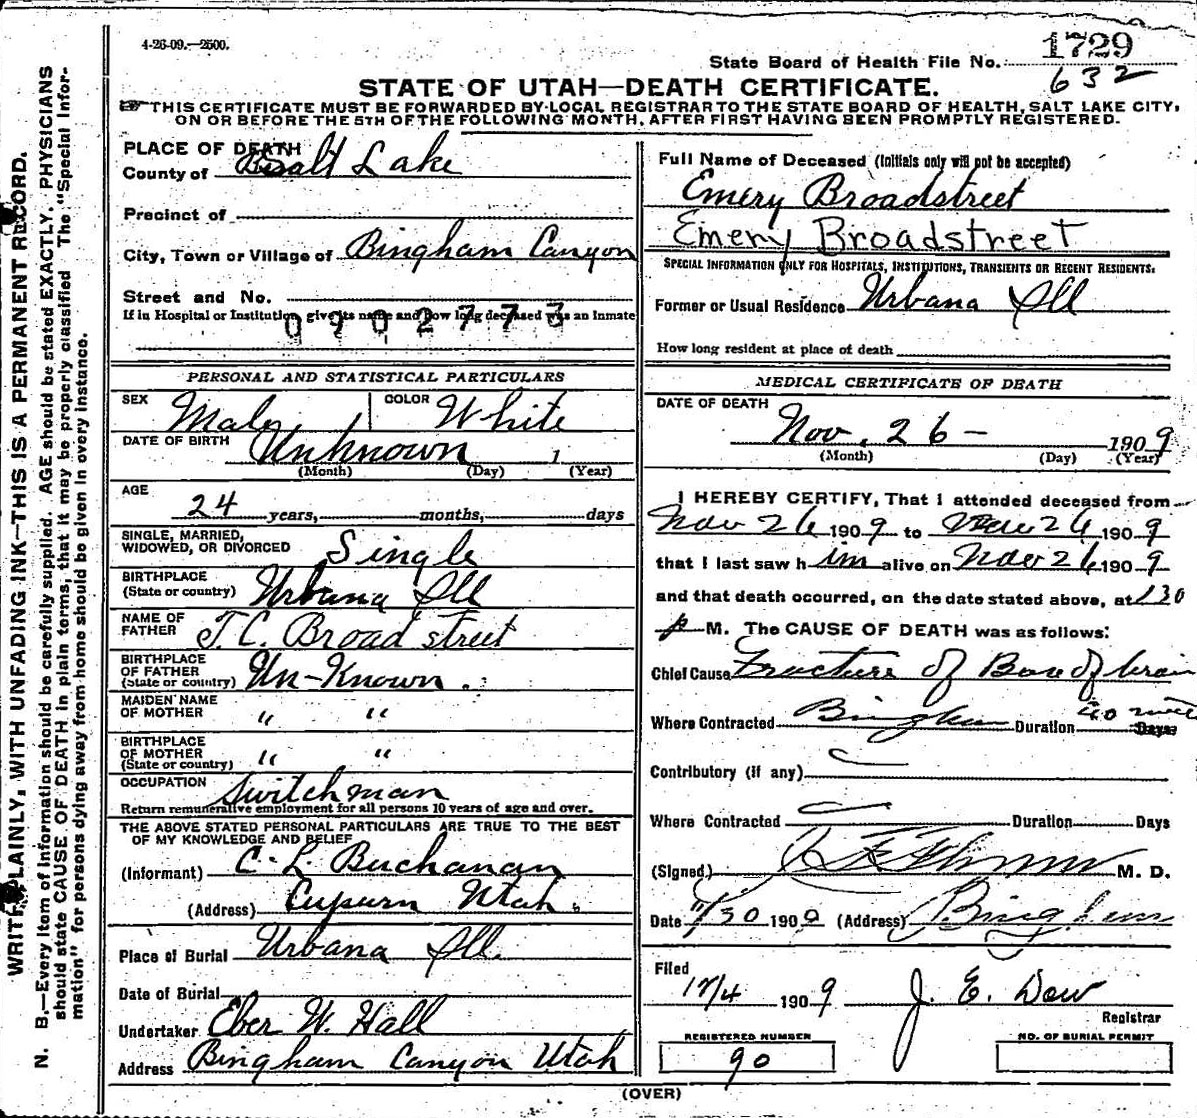 4-26-09.—2500.
State Board of Health File No. 1729
632
STATE OF UTAH—DEATH CERTIFICATE.
THIS CERTIFICATE MUST BE FORWARDED BY LOCAL REGISTRAR TO THE STATE BOARD OF HEALTH, SALT LAKE CITY,
ON OR BEFORE THE 5TH OF THE FOLLOWING MONTH, AFTER FIRST HAVING BEEN PROMPTLY REGISTERED.
WRITE PLAINLY, WITH UNFADING INK—THIS IS A PERMANENT RECORD.
N. B.—Every item of information should be carefully supplied. AGE should be stated EXACTLY. PHYSICIANS
should state CAUSE OF DEATH in plain terms, that it may be properly classified. The "Special Infor-
mation" for persons dying away from home should be given in every instance.
PLACE OF DEATH
County of Salt Lake
Precinct of
City, Town or Village of Bingham Canyon
Street and No.
If in Hospital or Institution, give its name and how long deceased was an inmate
0902773
PERSONAL AND STATISTICAL PARTICULARS
SEX Male COLOR White
DATE OF BIRTH Unknown 1
(Month) (Day) (Year)
AGE
24 years, months, days
SINGLE, MARRIED,
WIDOWED, OR DIVORCED Single
BIRTHPLACE
(State or country) Urbana Ill
NAME OF
FATHER T. C. Broadstreet
BIRTHPLACE
OF FATHER
(State or country) Un-Known.
MAIDEN NAME
OF MOTHER " "
BIRTHPLACE
OF MOTHER
(State or country) " "
OCCUPATION Switchman
Return remunerative employment for all persons 10 years of age and over.
THE ABOVE STATED PERSONAL PARTICULARS ARE TRUE TO THE BEST
OF MY KNOWLEDGE AND BELIEF
(Informant) C. L. Buchanan
(Address) Utah.
Place of Burial Urbana Ill.
Date of Burial
Undertaker Eber W. Hall
Address Bingham Canyon Utah
Full Name of Deceased (Initials only will not be accepted)
Emery Broadstreet
Emery Broadstreet
SPECIAL INFORMATION ONLY FOR HOSPITALS, INSTITUTIONS, TRANSIENTS OR RECENT RESIDENTS.
Former or Usual Residence Urbana Ill
How long resident at place of death
MEDICAL CERTIFICATE OF DEATH
DATE OF DEATH
Nov. 26 — 1909
(Month) (Day) (Year)
I HEREBY CERTIFY, That I attended deceased from
Nov 26 1909 to Nov 26 1909
that I last saw him alive on Nov 26 1909
and that death occurred, on the date stated above, at 130
p M. The CAUSE OF DEATH was as follows:
Chief Cause Fracture of Base of brain
Where Contracted Bingham Duration 40 Days
Contributory (if any)
Where Contracted Duration Days
(Signed) M. D.
Date 11/30 1909 (Address) Bingham
Filed
12/4 1909 J. E. Dow
Registrar
REGISTERED NUMBER
90
NO. OF BURIAL PERMIT
(OVER)